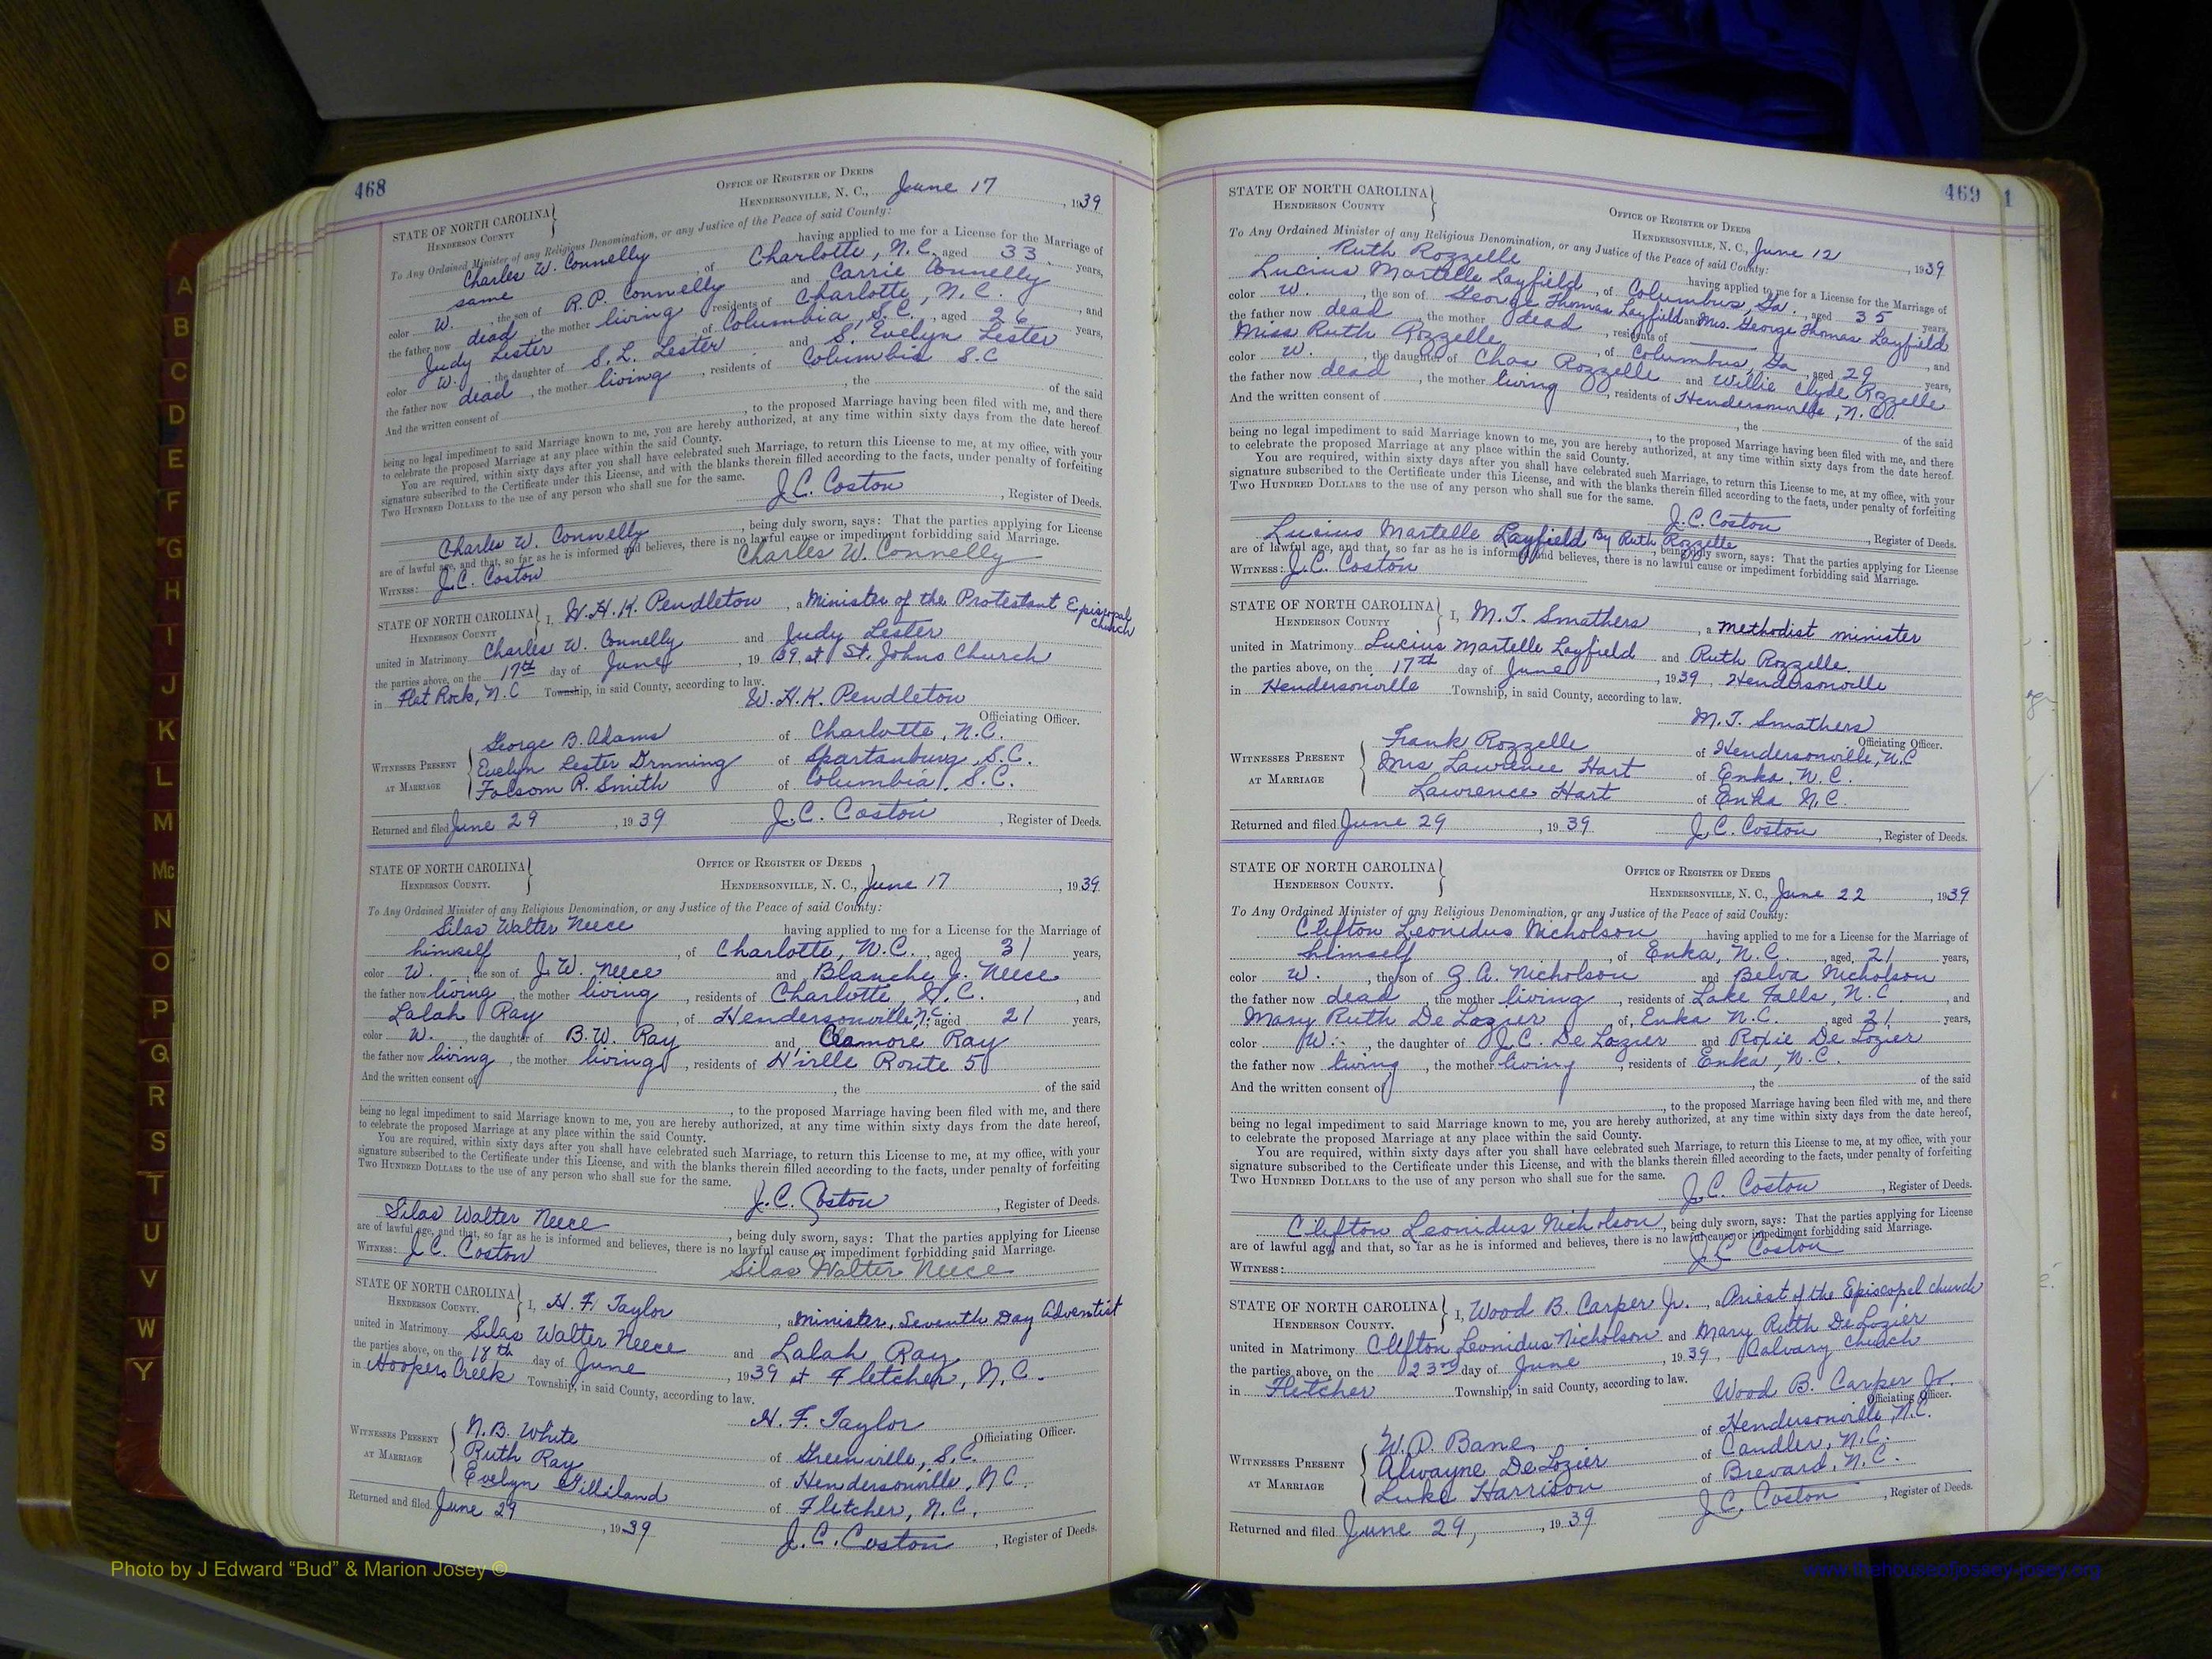 468
STATE OF NORTH CAROLINA
HENDERSON COUNTY
OFFICE OF REGISTER OF DEEDS
HENDERSONVILLE, N. C., June 17, 1939
To Any Ordained Minister of any Religious Denomination, or any Justice of the Peace of said County:
Charles W. Connelly having applied to me for a License for the Marriage of
same, of Charlotte, N.C. aged 33 years,
color W., the son of R.P. Connelly and Carrie Connelly
the father now dead, the mother living, residents of Charlotte, N.C., and
Judy Lester, of Columbia, S.C., aged 26 years,
color W., the daughter of S.L. Lester and S. Evelyn Lester
the father now dead, the mother living, residents of Columbia S.C
And the written consent of , the of the said
, to the proposed Marriage having been filed with me, and there
being no legal impediment to said Marriage known to me, you are hereby authorized, at any time within sixty days from the date hereof,
to celebrate the proposed Marriage at any place within the said County.
You are required, within sixty days after you shall have celebrated such Marriage, to return this License to me, at my office, with your
signature subscribed to the Certificate under this License, and with the blanks therein filled according to the facts, under penalty of forfeiting
TWO HUNDRED DOLLARS to the use of any person who shall sue for the same.
J.C. Coston, Register of Deeds.
Charles W. Connelly, being duly sworn, says: That the parties applying for License
are of lawful age, and that, so far as he is informed and believes, there is no lawful cause or impediment forbidding said Marriage.
WITNESS: J.C. Coston Charles W. Connelly
STATE OF NORTH CAROLINA
HENDERSON COUNTY
I, W.H.K. Pendleton, a Minister of the Protestant Episcopal Church
united in Matrimony Charles W. Connelly and Judy Lester
the parties above, on the 17th day of June, 1939, at St. Johns Church
in Flat Rock, N.C Township, in said County, according to law.
W.H.K. Pendleton
Officiating Officer.
WITNESSES PRESENT AT MARRIAGE
George B. Adams of Charlotte, N.C.
Evelyn Lester of Spartanburg, S.C.
Folsom R. Smith of Columbia, S.C.
Returned and filed June 29, 1939 J.C. Coston, Register of Deeds.
STATE OF NORTH CAROLINA
HENDERSON COUNTY.
OFFICE OF REGISTER OF DEEDS
HENDERSONVILLE, N. C., June 17, 1939
To Any Ordained Minister of any Religious Denomination, or any Justice of the Peace of said County:
Silas Walter Neece having applied to me for a License for the Marriage of
himself, of Charlotte, N.C., aged 31 years,
color W., the son of J.W. Neece and Blanche J. Neece
the father now living, the mother living, residents of Charlotte, N.C., and
Lalah Ray, of Hendersonville, N.C. aged 21 years,
color W., the daughter of B.W. Ray and Ray
the father now living, the mother living, residents of H'ville Route 5
And the written consent of , the of the said
, to the proposed Marriage having been filed with me, and there
being no legal impediment to said Marriage known to me, you are hereby authorized, at any time within sixty days from the date hereof,
to celebrate the proposed Marriage at any place within the said County.
You are required, within sixty days after you shall have celebrated such Marriage, to return this License to me, at my office, with your
signature subscribed to the Certificate under this License, and with the blanks therein filled according to the facts, under penalty of forfeiting
TWO HUNDRED DOLLARS to the use of any person who shall sue for the same.
J.C. Coston, Register of Deeds.
Silas Walter Neece, being duly sworn, says: That the parties applying for License
are of lawful age, and that, so far as he is informed and believes, there is no lawful cause or impediment forbidding said Marriage.
WITNESS: J.C. Coston Silas Walter Neece
STATE OF NORTH CAROLINA
HENDERSON COUNTY.
I, H.F. Taylor, a Minister, Seventh Day Adventist
united in Matrimony Silas Walter Neece and Lalah Ray
the parties above, on the 18th day of June, 1939 at Fletcher, N.C.
in Hoopers Creek Township, in said County, according to law.
H.F. Taylor
Officiating Officer.
WITNESSES PRESENT AT MARRIAGE
N.B. White of Greenville, S.C.
Ruth Ray of Hendersonville, N.C.
Evelyn Gilliland of Fletcher, N.C.
Returned and filed June 29, 1939 J.C. Coston, Register of Deeds.
469
1
STATE OF NORTH CAROLINA
HENDERSON COUNTY
OFFICE OF REGISTER OF DEEDS
HENDERSONVILLE, N. C., June 12, 1939
To Any Ordained Minister of any Religious Denomination, or any Justice of the Peace of said County:
Ruth Rozzelle having applied to me for a License for the Marriage of
Lucius Martelle Layfield, of Columbus, Ga., aged 35 years,
color W., the son of George Thomas Layfield and Mrs. George Thomas Layfield
the father now dead, the mother dead, residents of , and
Miss Ruth Rozzelle, of Columbus, Ga, aged 29 years,
color W., the daughter of Chas Rozzelle and Willie Clyde Rozzelle
the father now dead, the mother living, residents of Hendersonville, N.C.
And the written consent of , the of the said
, to the proposed Marriage having been filed with me, and there
being no legal impediment to said Marriage known to me, you are hereby authorized, at any time within sixty days from the date hereof.
to celebrate the proposed Marriage at any place within the said County.
You are required, within sixty days after you shall have celebrated such Marriage, to return this License to me, at my office, with your
signature subscribed to the Certificate under this License, and with the blanks therein filled according to the facts, under penalty of forfeiting
TWO HUNDRED DOLLARS to the use of any person who shall sue for the same.
J.C. Coston, Register of Deeds.
Lucius Martelle Layfield By Ruth Rozzelle, being duly sworn, says: That the parties applying for License
are of lawful age, and that, so far as he is informed and believes, there is no lawful cause or impediment forbidding said Marriage.
WITNESS: J.C. Coston
STATE OF NORTH CAROLINA
HENDERSON COUNTY
I, M.T. Smathers, a Methodist minister
united in Matrimony Lucius Martelle Layfield and Ruth Rozzelle.
the parties above, on the 17th day of June, 1939, Hendersonville
in Hendersonville Township, in said County, according to law.
M.T. Smathers
Officiating Officer.
WITNESSES PRESENT AT MARRIAGE
Frank Rozzelle of Hendersonville, N.C
Mrs Lawrence Hart of Enka, N.C.
Lawrence Hart of Enka N.C.
Returned and filed June 29, 1939 J.C. Coston, Register of Deeds.
STATE OF NORTH CAROLINA
HENDERSON COUNTY.
OFFICE OF REGISTER OF DEEDS
HENDERSONVILLE, N. C., June 22, 1939
To Any Ordained Minister of any Religious Denomination, or any Justice of the Peace of said County:
Clifton Leonidus Nicholson having applied to me for a License for the Marriage of
himself, of Enka, N.C., aged 21 years,
color W., the son of G.A. Nicholson and Belva Nicholson
the father now dead, the mother living, residents of Lake Falls, N.C., and
Mary Ruth De Lozier, of Enka N.C. aged 21 years,
color W., the daughter of J.C. De Lozier and Roxie De Lozier
the father now living, the mother living, residents of Enka, N.C.
And the written consent of , the of the said
, to the proposed Marriage having been filed with me, and there
being no legal impediment to said Marriage known to me, you are hereby authorized, at any time within sixty days from the date hereof,
to celebrate the proposed Marriage at any place within the said County.
You are required, within sixty days after you shall have celebrated such Marriage, to return this License to me, at my office, with your
signature subscribed to the Certificate under this License, and with the blanks therein filled according to the facts, under penalty of forfeiting
TWO HUNDRED DOLLARS to the use of any person who shall sue for the same.
J.C. Coston, Register of Deeds.
Clifton Leonidus Nicholson, being duly sworn, says: That the parties applying for License
are of lawful age, and that, so far as he is informed and believes, there is no lawful cause or impediment forbidding said Marriage.
WITNESS: J.C. Coston
STATE OF NORTH CAROLINA
HENDERSON COUNTY.
I, Wood B. Carper Jr., a Priest of the Episcopal church
united in Matrimony Clifton Leonidus Nicholson and Mary Ruth De Lozier
the parties above, on the 23rd day of June, 1939, Calvary Church
in Fletcher Township, in said County, according to law.
Wood B. Carper Jr.
Officiating Officer.
WITNESSES PRESENT AT MARRIAGE
W.P. Bane of Hendersonville, N.C.
Alwayne De Lozier of Candler, N.C.
Luke Harrison of Brevard, N.C.
Returned and filed June 29, 1939 J.C. Coston, Register of Deeds.
A
B
C
D
E
F
G
H
I
J
K
L
M
Mc
N
O
P
Q
R
S
T
U
V
W
Y
Photo by J Edward “Bud” & Marion Josey ©
www.thehouseofjossey-josey.org